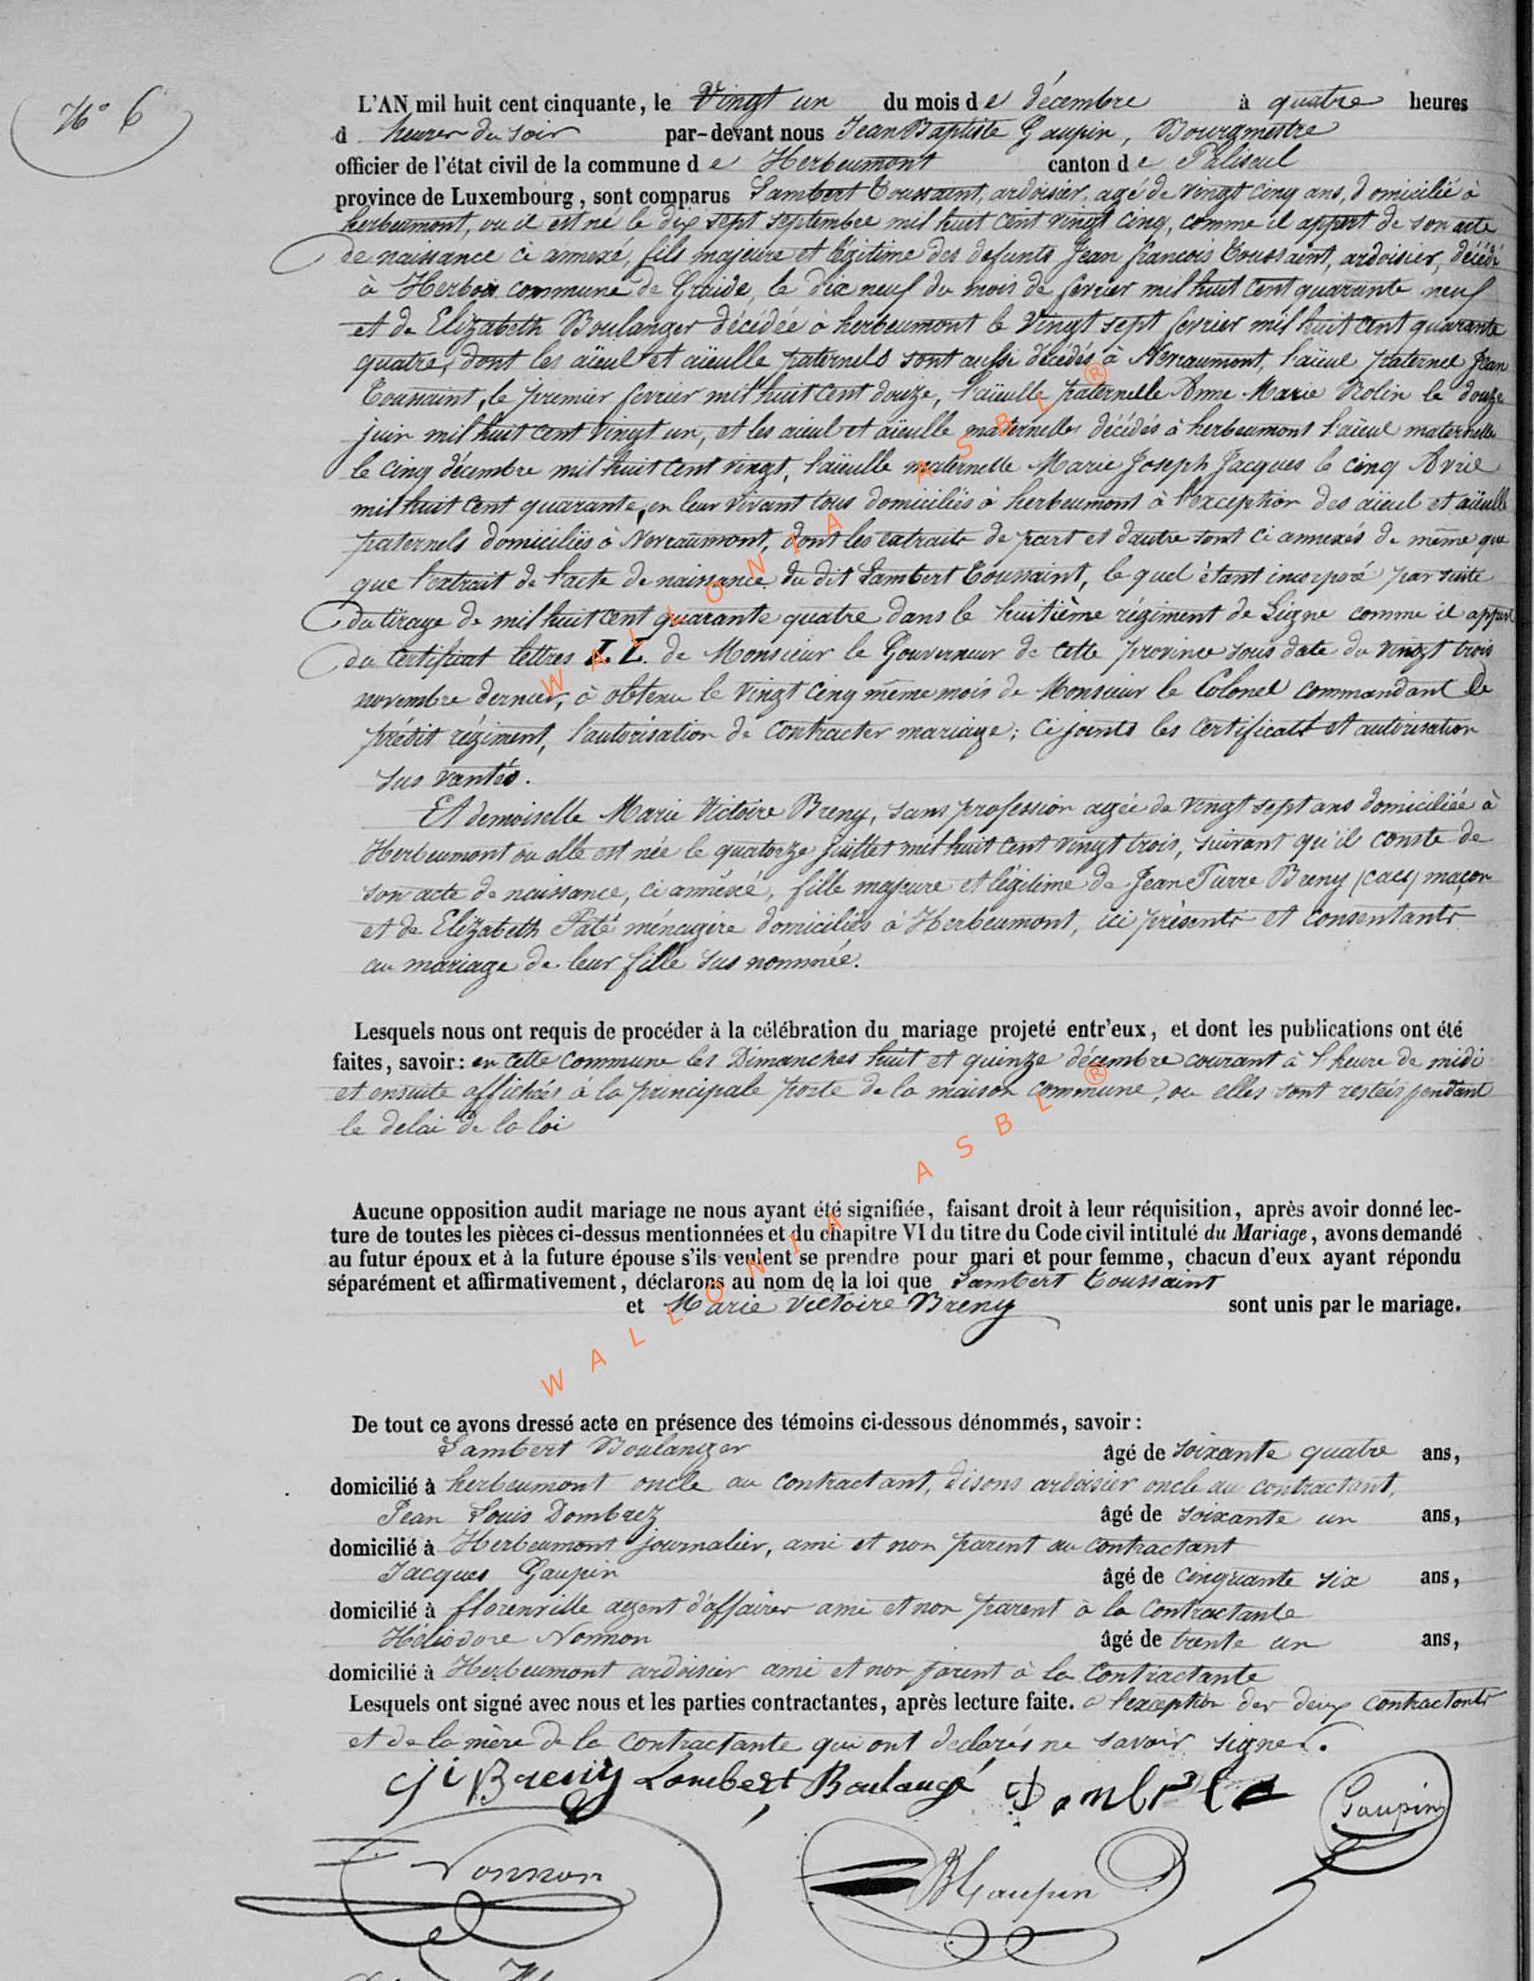 N° 6
L'AN mil huit cent cinquante, le Vingt un du mois de décembre à quatre heures
d heures du soir par-devant nous Jean Baptiste Gaupin, Bourgmestre
officier de l'état civil de la commune de Herbeumont canton de Paliseul
province de Luxembourg, sont comparus Lambert Toussaint, ardoisier, agé de vingt cinq ans, domicilié à
herbeumont, ou il est né le dix sept septembre mil huit cent vingt cinq, comme il appert de son acte
de naissance ci annexé, fils majeure et légitime des defunts Jean francois Toussaint, ardoisier, décédé
à Herbois commune de Graide, le dix neuf du mois de fevrier mil huit cent quarante neuf
et de Elizabeth Boulanger décédée à herbeumont le Vingt sept fevrier mil huit cent quarante
quatre, dont les aïeul et aïeulle paternels sont aussi décédés à Nevraumont, l'aïeul paternel Jean
Toussaint, le premier fevrier mil huit cent douze, l'aïeulle paternelle Anne Marie Rolin le douze
juin mil huit cent vingt un, et les aieul et aïeulle maternelles décédés à herbeumont l'aïeul maternelle
le cinq décembre mil huit cent vingt, l'aïeulle maternelle Marie Joseph Jacques le cinq Avril
mil huit cent quarante, en leur vivant tous domiciliés à herbeumont à l'exception des aïeul et aïeulle
paternels domiciliés à Nevraumont, dont les extraits de part et d'autre sont ci annexés de même que
que l'extrait de l'acte de naissance du dit Lambert Toussaint, le quel étant incorporé par suite
du tirage de mil huit cent quarante quatre dans le huitième régiment de Ligne comme il appert
du certificat lettres L.L. de Monsieur le Gouverneur de cette province sous date du vingt trois
novembre dernier, à obtenu le vingt cinq même mois de Monsieur le Colonel commandant le
prédit régiment, l'autorisation de contracter mariage; ci joints les certificats et autorisation
sus vantés.
Et demoiselle Marie Victoire Breny, sans profession agée de vingt sept ans domiciliée à
Herbeumont ou elle est née le quatorze juillet mil huit cent vingt trois, suivant qu'il conste de
son acte de naissance, ci annexé, fille majeure et légitime de Jean Pierre Breny maçon
et de Elizabeth Paté ménagère domiciliés à Herbeumont, ici présents et consentants
au mariage de leur fille sus nommée.
Lesquels nous ont requis de procéder à la célébration du mariage projeté entr'eux, et dont les publications ont été
faites, savoir: en cette commune les Dimanches huit et quinze décembre courant à l'heure de midi
et ensuite affichées à la principale porte de la maison commune, ou elles sont restées pendant
le delai de la loi
Aucune opposition audit mariage ne nous ayant été signifiée, faisant droit à leur réquisition, après avoir donné lec-
ture de toutes les pièces ci-dessus mentionnées et du chapitre VI du titre du Code civil intitulé du Mariage, avons demandé
au futur époux et à la future épouse s'ils veulent se prendre pour mari et pour femme, chacun d'eux ayant répondu
séparément et affirmativement, déclarons au nom de la loi que Lambert Toussaint
et Marie Victoire Breny sont unis par le mariage.
De tout ce avons dressé acte en présence des témoins ci-dessous dénommés, savoir:
Lambert Boulanger âgé de soixante quatre ans,
domicilié à herbeumont oncle au contractant, disons ardoisier oncle au contractant,
Jean Louis Dombrez âgé de soixante un ans,
domicilié à Herbeumont journalier, ami et non parent au contractant
Jacques Gaupin âgé de cinquante six ans,
domicilié à florenville agent d'affaires ami et non parent à la contractante
Héliodore Nonnon âgé de trente un ans,
domicilié à Herbeumont ardoisier ami et non parent à la contractante
Lesquels ont signé avec nous et les parties contractantes, après lecture faite. a l'exception des deux contractants
et de la mère de la contractante qui ont declarés ne savoir signer.
Breny Lambert Boulangé Gaupin
Nonnon Gaupin
WALLONIA ASBL ®
WALLONIA ASBL ®